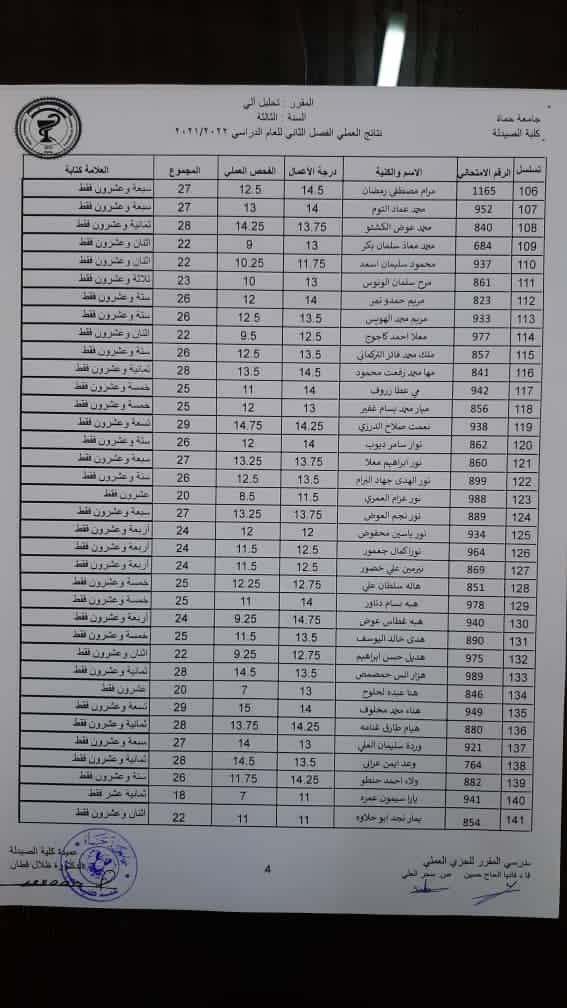 جامعة حماة
كلية الصيدلة
المقرر : تحليل آلي
السنة : الثالثة
نتائج العملي الفصل الثاني للعام الدراسي ٢٠٢١/٢٠٢٢
تسلسل الرقم الامتحاني الاسم والكنية درجة الأعمال الفحص العملي المجموع العلامة كتابة
106 1165 مرام مصطفى رمضان 14.5 12.5 27 سبعة وعشرون فقط
107 952 محمد عماد التوم 14 13 27 سبعة وعشرون فقط
108 840 محمد عوض الكشتو 13.75 14.25 28 ثمانية وعشرون فقط
109 684 محمد معاذ سلمان بكر 13 9 22 اثنان وعشرون فقط
110 937 محمود سليمان اسعد 11.75 10.25 22 اثنان وعشرون فقط
111 861 مرح سلمان الونوس 13 10 23 ثلاثة وعشرون فقط
112 823 مريم حمدو نمر 14 12 26 ستة وعشرون فقط
113 933 مريم محمد الهويس 13.5 12.5 26 ستة وعشرون فقط
114 977 معلا احمد كاجوج 12.5 9.5 22 اثنان وعشرون فقط
115 857 ملك محمد فائز التركماني 13.5 12.5 26 ستة وعشرون فقط
116 841 مها محمد رفعت محمود 14.5 13.5 28 ثمانية وعشرون فقط
117 942 مي عطا زروف 14 11 25 خمسة وعشرون فقط
118 856 ميار محمد بسام غفير 13 12 25 خمسة وعشرون فقط
119 938 نعمت صلاح الدرزي 14.25 14.75 29 تسعة وعشرون فقط
120 862 نوار سامر ديوب 14 12 26 ستة وعشرون فقط
121 860 نور ابراهيم معلا 13.75 13.25 27 سبعة وعشرون فقط
122 899 نور الهدى جهاد البرام 13.5 12.5 26 ستة وعشرون فقط
123 988 نور عزام العمري 11.5 8.5 20 عشرون فقط
124 889 نور نجم العوض 13.75 13.25 27 سبعة وعشرون فقط
125 934 نور ياسين محفوض 12 12 24 أربعة وعشرون فقط
126 964 نورا كمال جعمور 12.5 11.5 24 أربعة وعشرون فقط
127 869 نيرمين علي خضور 12.5 11.5 24 أربعة وعشرون فقط
128 851 هاله سلطان علي 12.75 12.25 25 خمسة وعشرون فقط
129 978 هبه بسام دناور 14 11 25 خمسة وعشرون فقط
130 940 هبه غطاس عوض 14.75 9.25 24 أربعة وعشرون فقط
131 890 هدى خالد اليوسف 13.5 11.5 25 خمسة وعشرون فقط
132 975 هديل حسن ابراهيم 12.75 9.25 22 اثنان وعشرون فقط
133 989 هزار انس حمصمص 13.5 14.5 28 ثمانية وعشرون فقط
134 846 هنا عبده لحلوح 13 7 20 عشرون فقط
135 949 هناء محمد مخلوف 14 15 29 تسعة وعشرون فقط
136 880 هيام طارق غنامه 14.25 13.75 28 ثمانية وعشرون فقط
137 921 وردة سليمان العلي 13 14 27 سبعة وعشرون فقط
138 764 وعد ايمن عرابي 13.5 14.5 28 ثمانية وعشرون فقط
139 882 ولاء احمد حنطو 14.25 11.75 26 ستة وعشرون فقط
140 941 يارا سيمون عمره 11 7 18 ثمانية عشر فقط
141 854 يمار نجد ابو حلاوه 11 11 22 اثنان وعشرون فقط
مدرسي المقرر للجزء العملي
قا.د فاديا الحاج حسين ص. سحر العلي
4
عميدة كلية الصيدلة
الدكتورة ظلال قطان